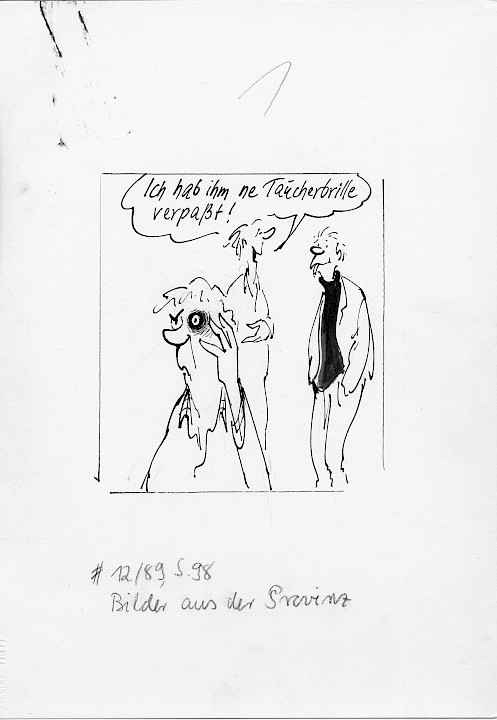 Ich hab ihm ne Taucherbrille
verpaßt!
# 12/89, S. 98
Bilder aus der Provinz